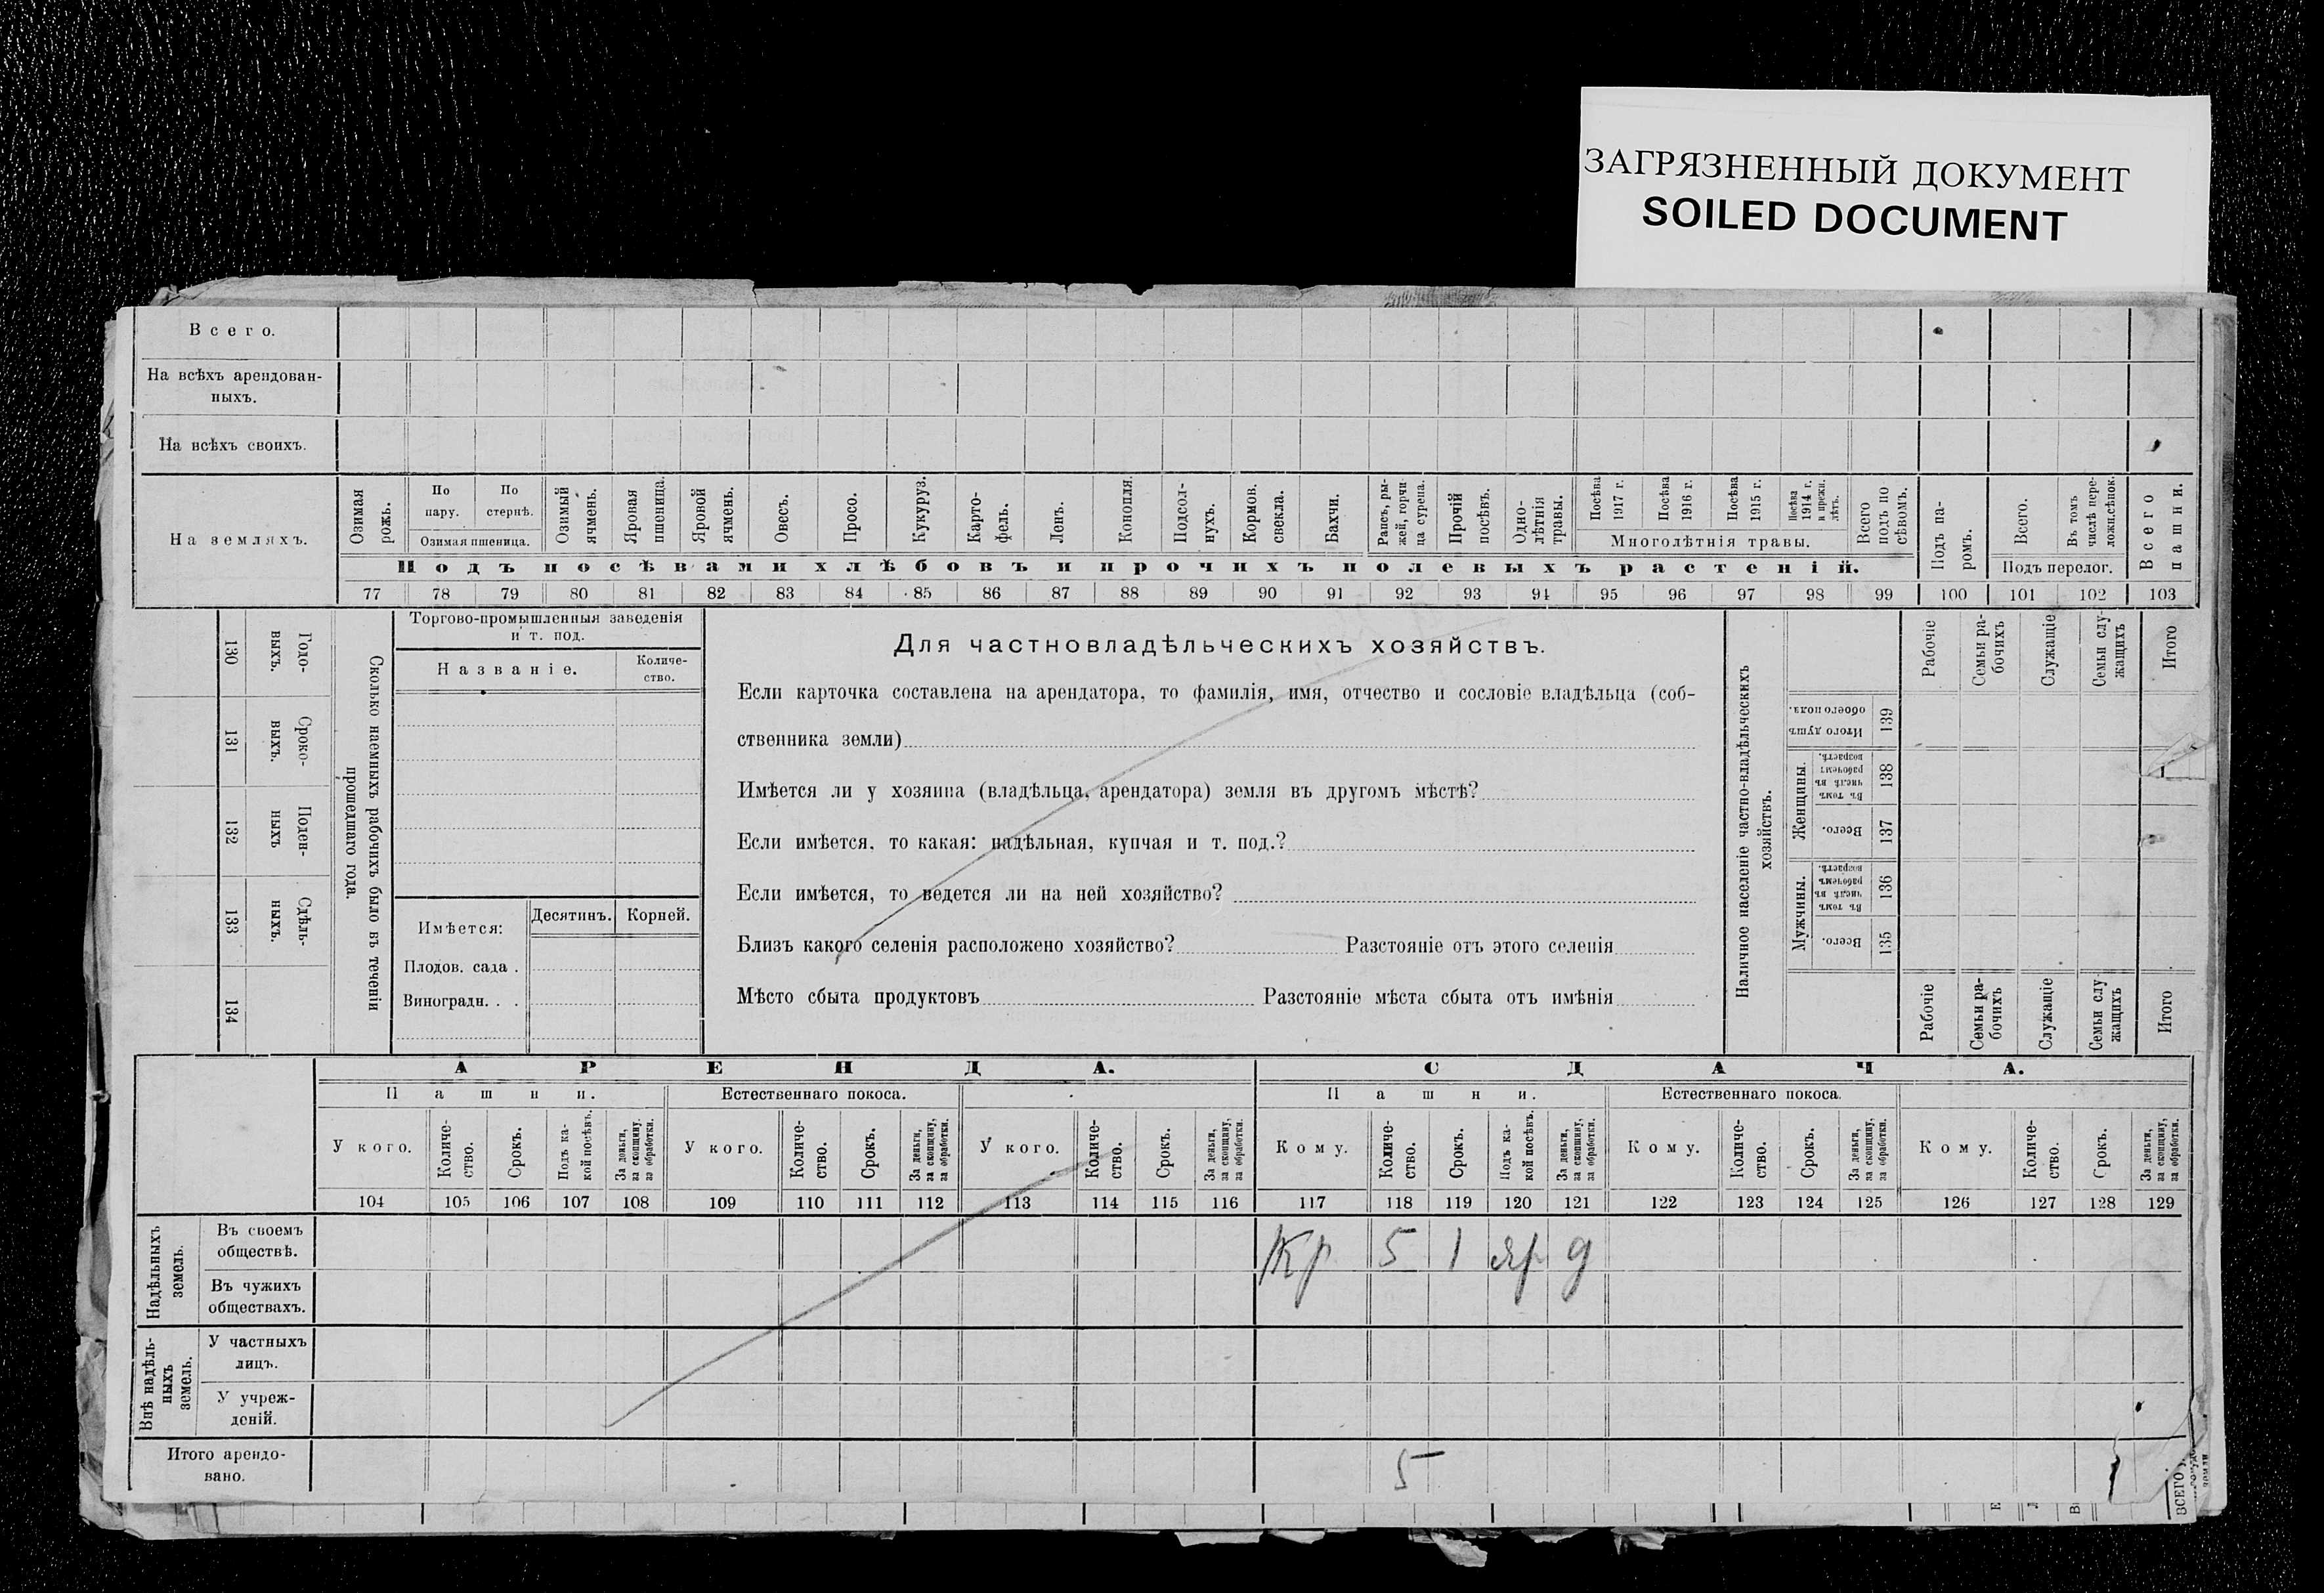 ЗАГРЯЗНЕННЫЙ ДОКУМЕНТ
SOILED DOCUMENT
Всего.
На всѣхъ арендован-
ныхъ.
На всѣхъ своихъ.
На земляхъ.
Озимая рожь.
По пару.
По стернѣ.
Озимая пшеница.
Озимый ячмень.
Яровая пшеница.
Яровой ячмень.
Овесъ.
Просо.
Кукуруз.
Карто-
фель.
Ленъ.
Конопля.
Подсол-
нухъ.
Кормов. свекла.
Бахчи.
Рапсъ, ры-
жей, горчи
ца сурепа.
Прочій посѣвъ.
Одно-
лѣтнія
травы.
Посѣва 1917 г.
Посѣва 1916 г.
Посѣва 1915 г.
Посѣва 1914 г. и прежн. лѣтъ.
Многолѣтнія травы.
Всего подъ по сѣвомъ.
Подъ посѣвами хлѣбовъ и прочихъ полевыхъ растеній.
Подъ па-
ромъ.
Всего.
Въ томъ числѣ пере-
ложн.сѣнок.
Подъ перелог.
Всего пашни.
77 78 79 80 81 82 83 84 85 86 87 88 89 90 91 92 93 94 95 96 97 98 99 100 101 102 103
130 Годо-
выхъ.
131 Сроко-
выхъ.
132 Поден-
ныхъ
133 Сдѣль-
ныхъ.
134
Сколько наемныхъ рабочихъ было въ теченіи
прошедшаго года.
Торгово-промышленныя заведенія
и т. под.
Названіе.
Количе-
ство.
Имѣется:
Десятинъ.
Корней.
Плодов. сада .
Виноградн. . .
Для частновладѣльческихъ хозяйствъ.
Если карточка составлена на арендатора, то фамилія, имя, отчество и сословіе владѣльца (соб-
ственника земли)
Имѣется ли у хозяина (владѣльца, арендатора) земля въ другомъ мѣстѣ?
Если имѣется, то какая: надѣльная, купчая и т. под.?
Если имѣется, то ведется ли на ней хозяйство?
Близъ какого селенія расположено хозяйство? Разстояніе отъ этого селенія
Мѣсто сбыта продуктовъ Разстояніе мѣста сбыта отъ имѣнія
Наличное населеніе частно-владѣльческихъ
хозяйствъ.
Рабочіе
Семьи ра-
бочихъ
Служащіе
Семьи слу-
жащихъ
Итого
Итого душъ обоего пола. 139
Женщины.
Въ томъ числѣ въ рабочемъ возрастѣ. 138
Всего. 137
Мужчины.
Въ томъ числѣ въ рабочемъ возрастѣ. 136
Всего. 135
Рабочіе
Семьи ра-
бочихъ
Служащіе
Семьи слу
жащихъ
Итого
АРЕНДА.
СДАЧА.
Пашни.
Естественнаго покоса.
Пашни.
Естественнаго покоса.
У кого.
Количе-
ство.
Срокъ.
Подъ ка-
кой посѣвъ.
За деньги, за скопщину, за обработки.
У кого.
Количе-
ство.
Срокъ.
За деньги, за скопщину, за обработки.
У кого.
Количе-
ство.
Срокъ.
За деньги, за скопщину, за обработки.
Кому.
Количе-
ство.
Срокъ.
Подъ ка-
кой посѣвъ.
За деньги, за скопщину, за обработки.
Кому.
Количе-
ство.
Срокъ.
За деньги, за скопщину, за обработки.
Кому.
Количе-
ство.
Срокъ.
За деньги, за скопщину, за обработки.
104 105 106 107 108 109 110 111 112 113 114 115 116 117 118 119 120 121 122 123 124 125 126 127 128 129
Надѣльныхъ
земель.
Въ своемъ
обществѣ.
Кр 5 1 яр д
Въ чужихъ
обществахъ.
Внѣ надѣль-
ныхъ
земель.
У частныхъ
лицъ.
У учреж-
деній.
Итого арендо-
вано.
5
ВСЕГО